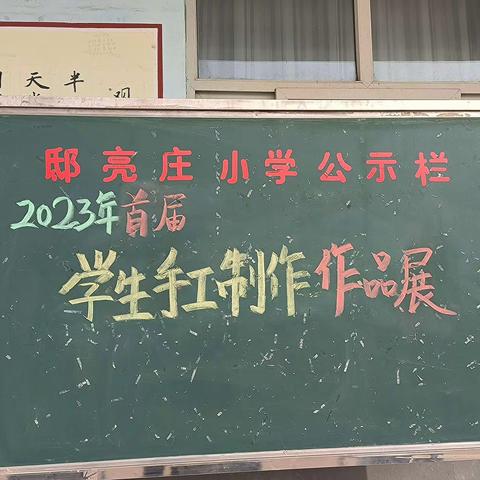 天半
观
邸亮庄小学公示栏
2023年首届
学生手工制作作品展